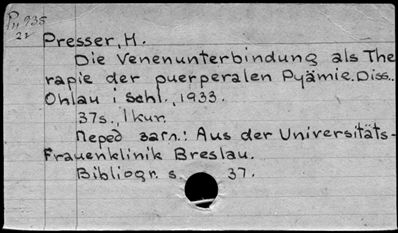 Рц 935
22
Presser, H.
Die Venenunterbindung als The
rapie der puerperalen Pyämie. Diss..
Ohlau i Schl., 1933.
37s., 1 kur.
Перед загл.: Aus der Universitäts-
Frauenklinik Breslau.
Bibliogr. s. 37.